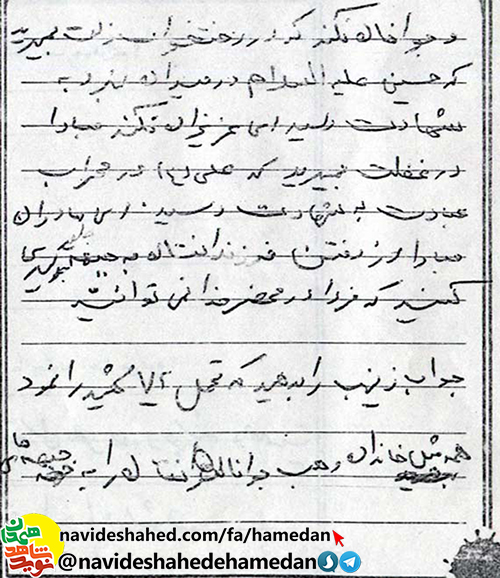 و جوانان نکند که در رختخواب ذلت بمیرید
که حسین علیه السلام در میدان نبرد به
شهادت رسید ای عزیزان نکند مبادا
در غفلت بمیرید که علی (ع) در محراب
عبادت به شهادت رسید. ای مادران
مبادا از رفتن فرزندانتان به جبهه جلوگیری
کنید که فردا در محضر خدا نمی توانید
جواب زینب را بدهید که تحمل ۷۲ شهید را نمود
همه مثل خاندان وهب جوانانتان را به جبهه های
navideshahed.com/fa/hamedan
@navideshahedehamedan